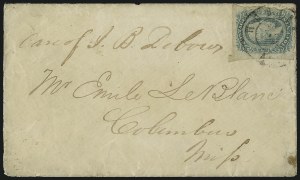 Care of J. B. Debow
Mr Emile LeBlanc
Columbus
Miss